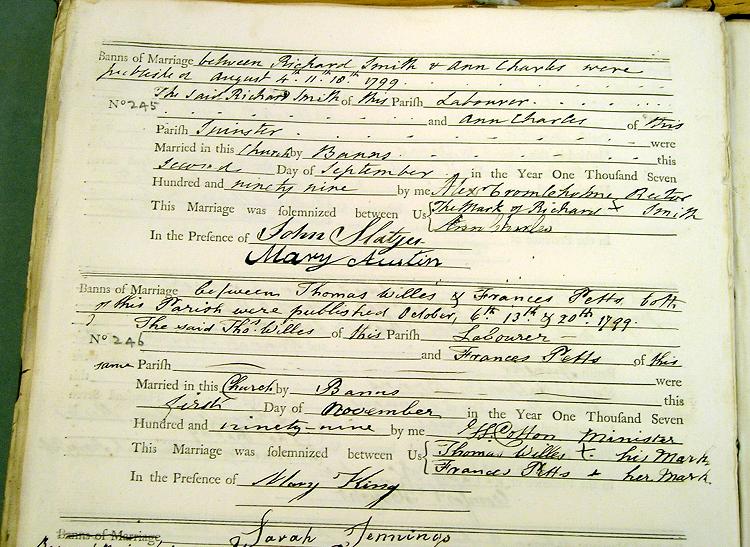 Banns of Marriage between Richard Smith & Ann Charles were
published August 4th 11th 18th 1799
The Said Richard Smith of this Pariſh Labourer
No 245
and Ann Charles of this
Pariſh Spinster were
Married in this Church by Banns this
Second Day of September in the Year One Thouſand Seven
Hundred and ninety nine by me Alexr Cromleholme Rector
This Marriage was solemnized between Us The Mark of Richard X Smith
Ann Charles
In the Preſence of John Slatyer
Mary Austin
Banns of Marriage between Thomas Willes & Frances Petts both
of this Parish were published October, 6th 13th & 20th 1799.
The said Thos Willes of this Pariſh Labourer
No 246
and Frances Petts of this
same Pariſh were
Married in this Church by Banns this
first Day of November in the Year One Thouſand Seven
Hundred and ninety-nine by me Cotton Minister
This Marriage was solemnized between Us Thomas Willes X his Mark
Frances Petts + her Mark
In the Preſence of Mary King
Banns of Marriage, Sarah Jennings